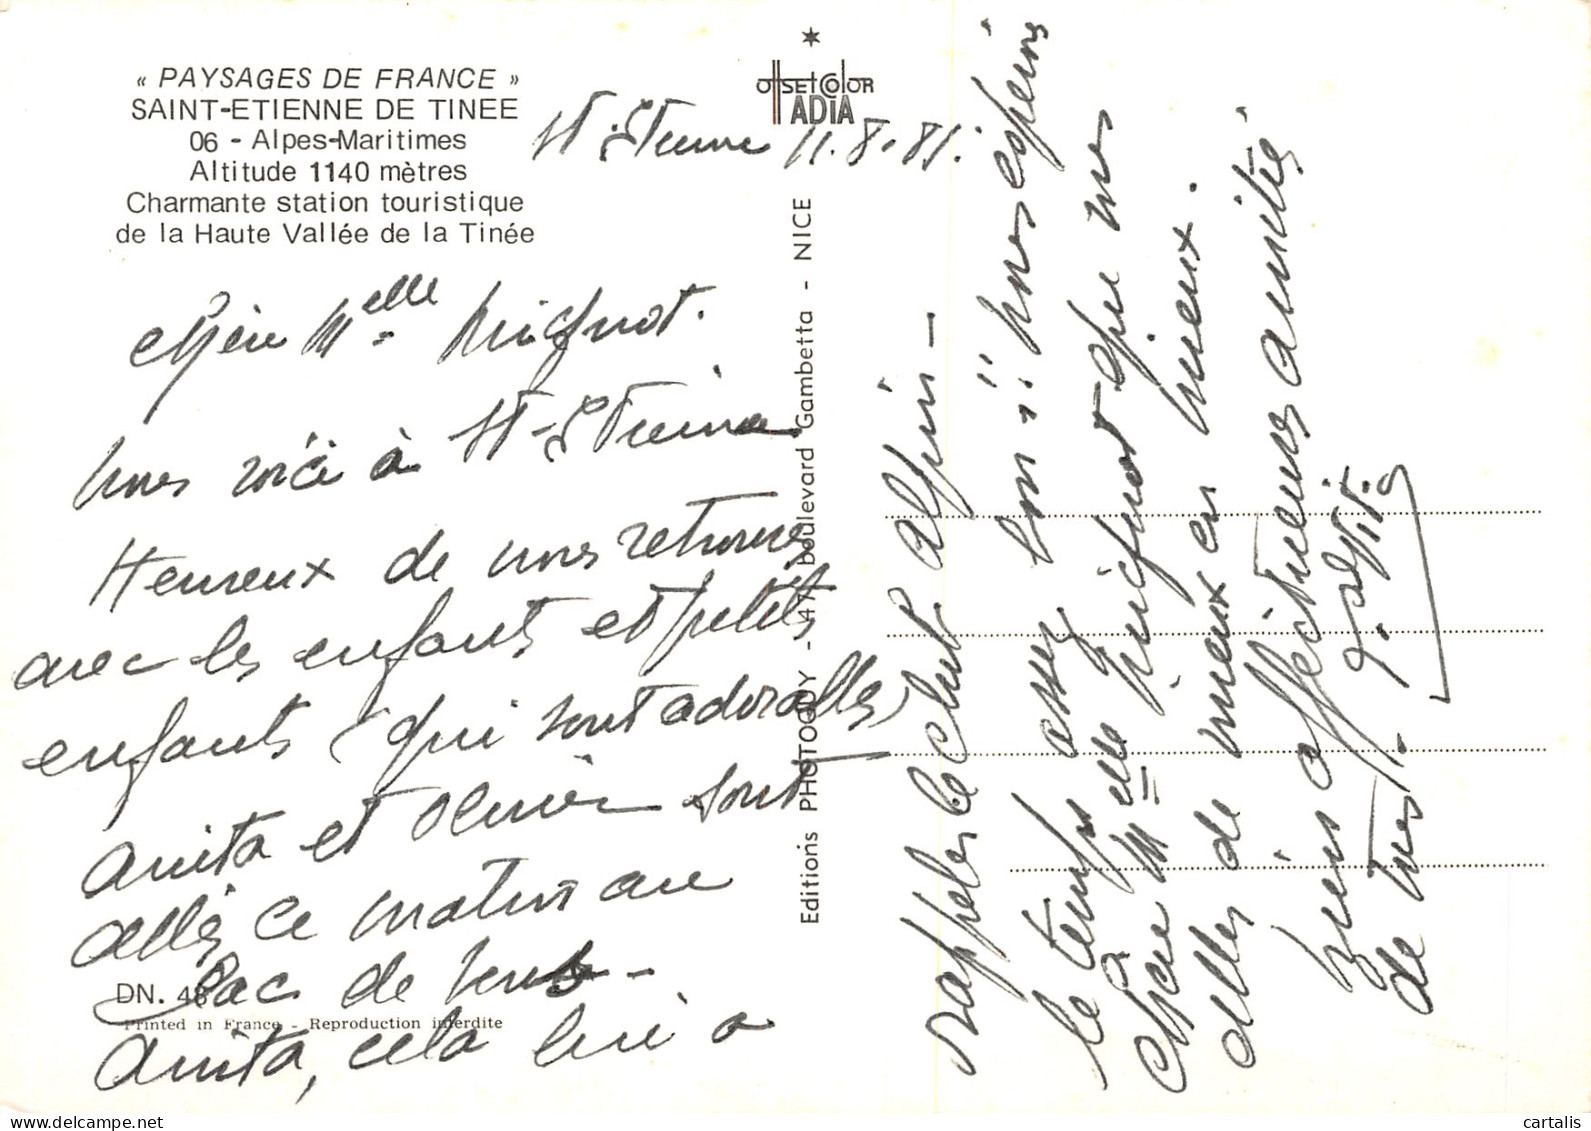 « PAYSAGES DE FRANCE »
SAINT-ETIENNE DE TINEE
06 - Alpes-Maritimes
Altitude 1140 mètres
Charmante station touristique
de la Haute Vallée de la Tinée
OffSETCOlOR
ADIA
St. Etienne 11.8.81.
Chère Melle Mignot.
Nous voici à St-Etienne
Heureux de nous retrouver
avec les enfants et petits
enfants (qui sont adorables)
Anita et Olivier sont
allés ce matin au
Lac de Vens -
Anita, cela lui a
rappeler le club alpin -
le temps assez bon..!! nous espérons
Chère Melle Mignot que vous
allez de mieux en mieux.
bien affectueuses amitiés
de tous.
Editions PHOTOGUY - 47, boulevard Gambetta - NICE
DN. 48
Printed in France - Reproduction interdite
cartalis